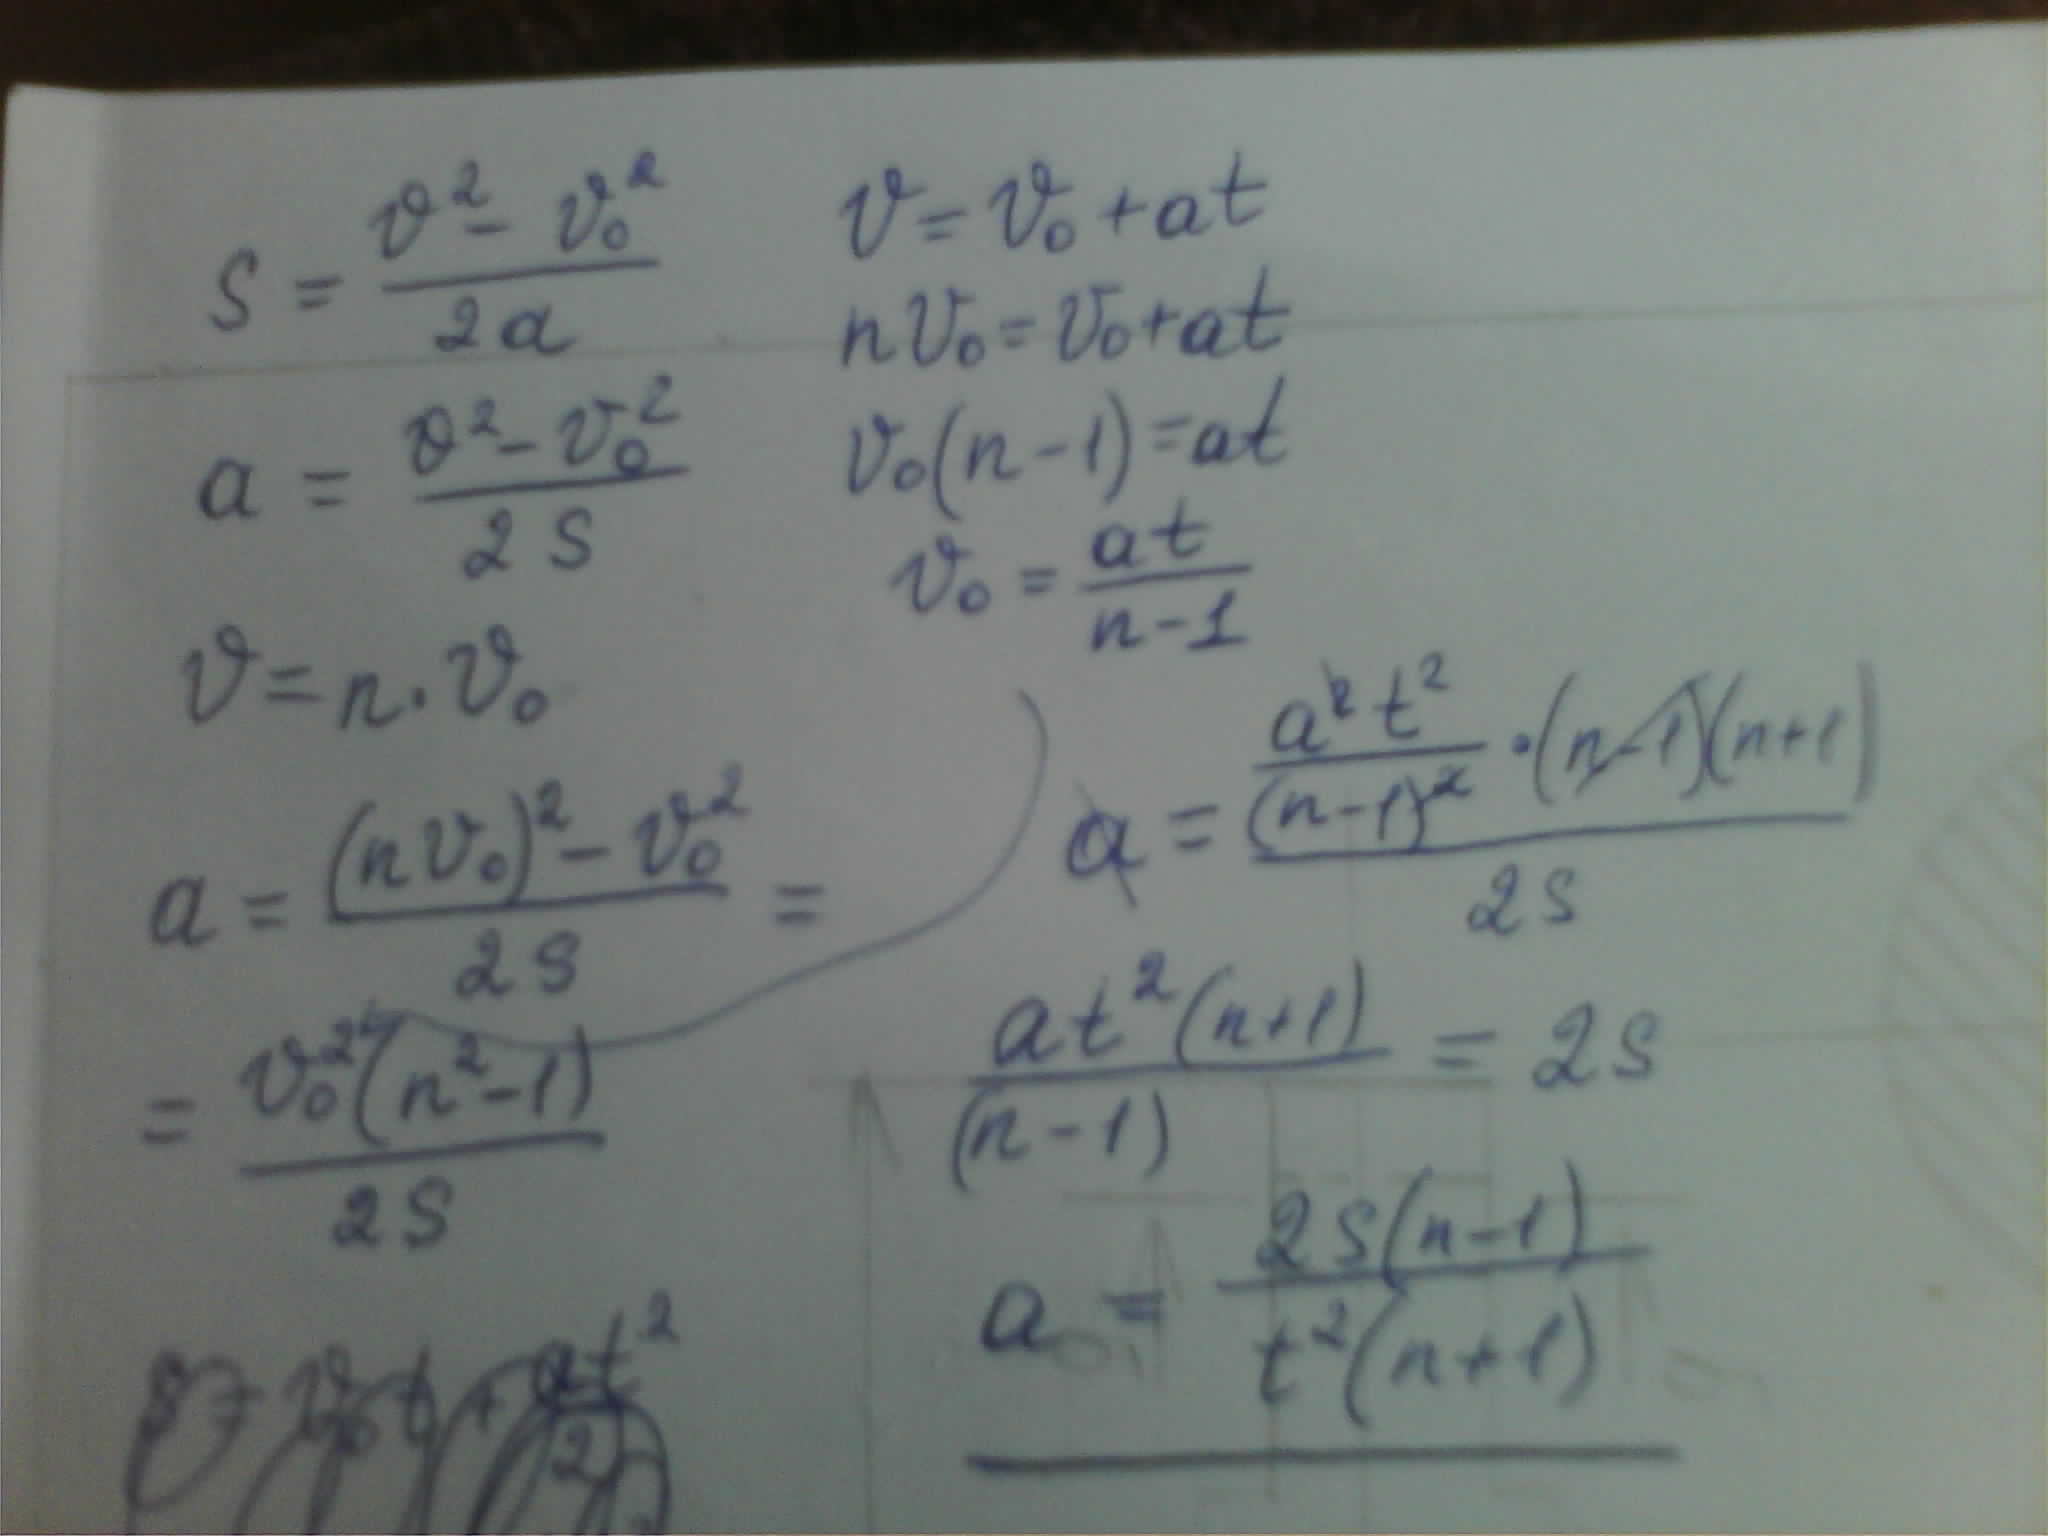 s = (v² - v₀²) / 2a
a = (v² - v₀²) / 2s
v = n · v₀
a = ((nv₀)² - v₀²) / 2s =
= v₀²(n² - 1) / 2s
s = v₀t + at² / 2
v = v₀ + at
nv₀ = v₀ + at
v₀(n - 1) = at
v₀ = at / (n - 1)
a = (a²t² / (n - 1)² · (n - 1)(n + 1)) / 2s
at²(n + 1) / (n - 1) = 2s
a = 2s(n - 1) / t²(n + 1)